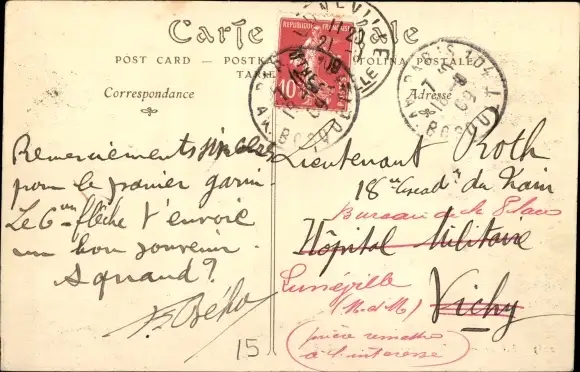 Carte Postale
POST CARD — POSTK
TOLINA POSTALE
Correspondance
Adresse
REPUBLIQUE FRANÇAISE
10
LUNEVILLE
21
09
PARIS 104
BOSQUET
Remerciements sincères
pour le premier garni.
Le 6ème flèche t'envoie
un bon souvenir.
A quand ?
Lieutenant Roth
18ème Escadn du Train
Bureau de la Place
Hôpital Militaire
Lunéville
(M-d-M)
Vichy
prière remettre
à l'intéressé
15